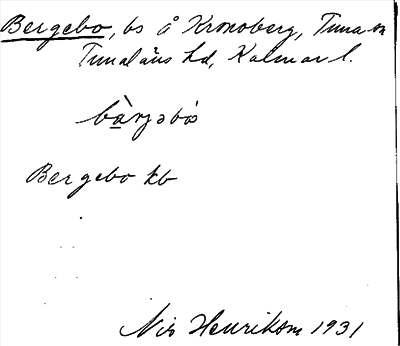 Bergebo, bs å Kronoberg, Tuna sn
Tunaläns hd, Kalmar l.
bàrjəbò
Bergebo kb
Nils Henrikson 1931